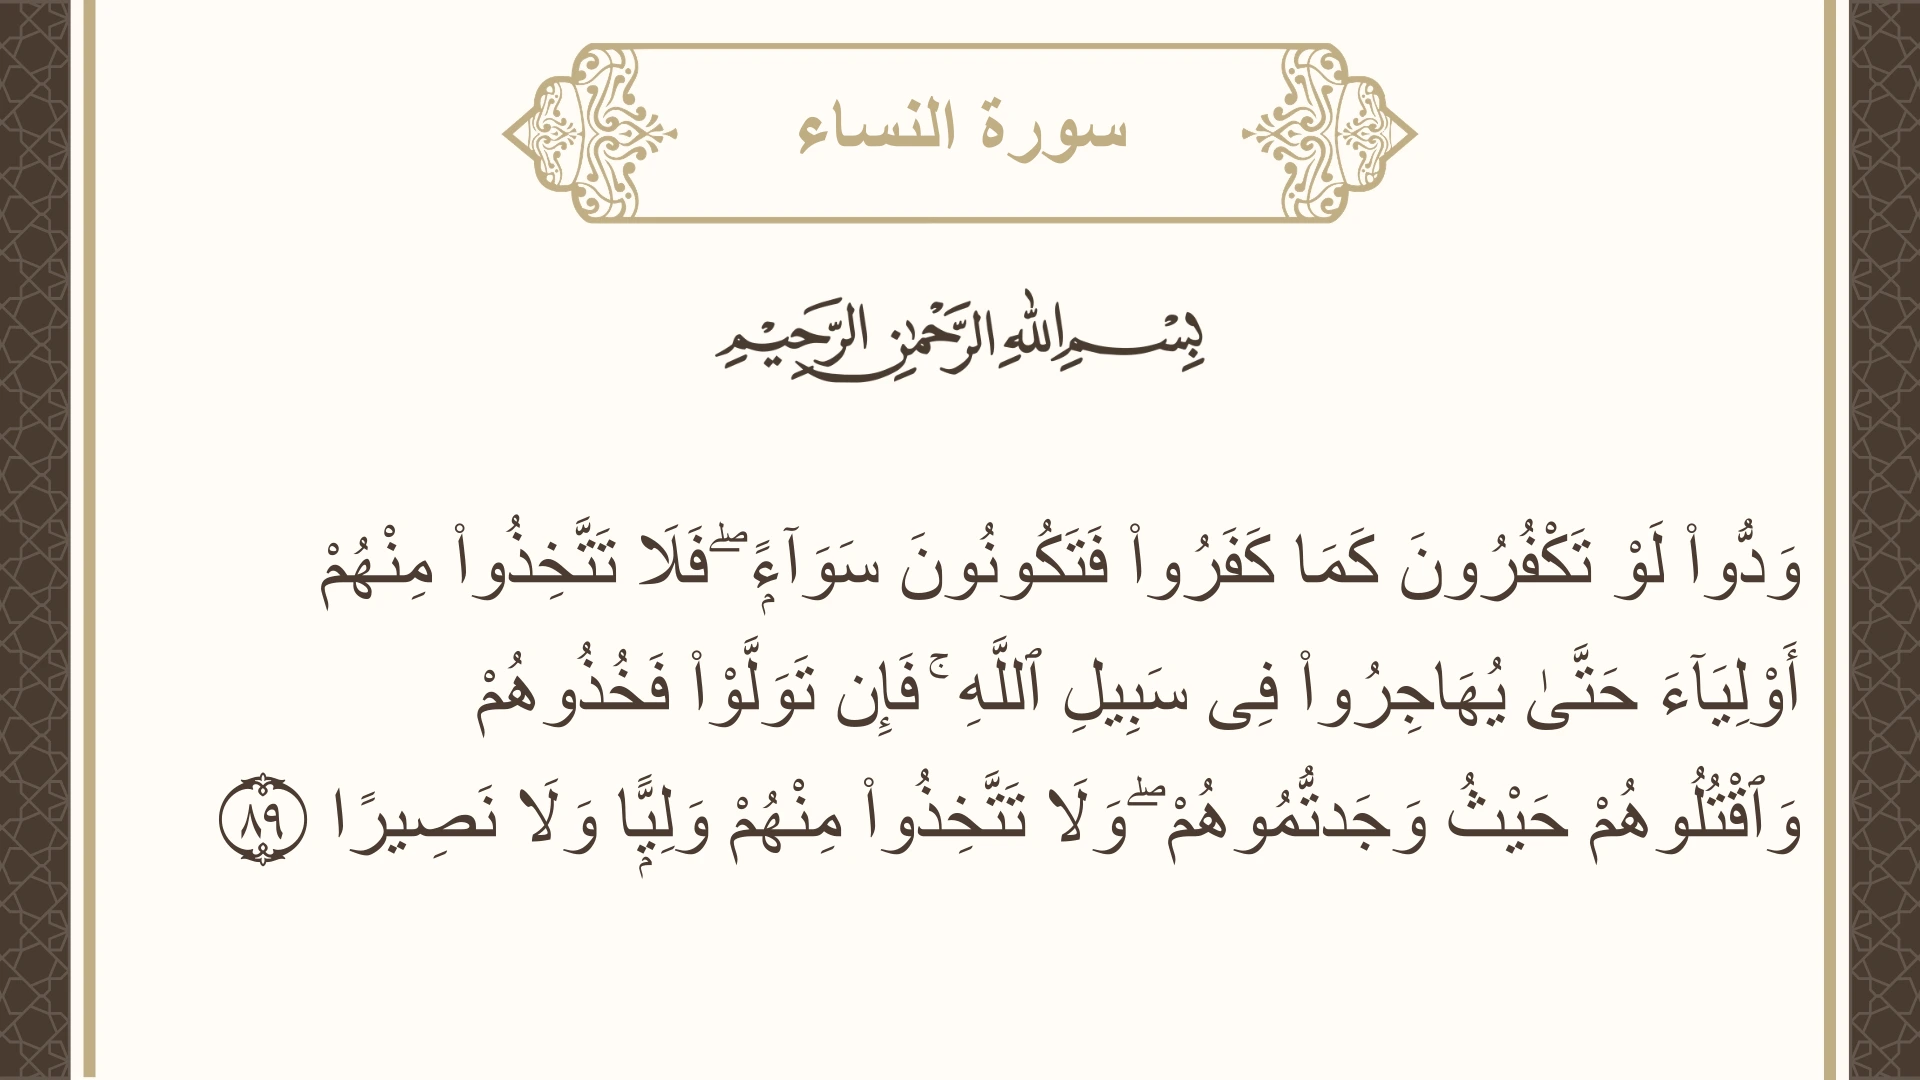 سورة النساء
بِسْمِ اللهِ الرَّحْمٰنِ الرَّحِيْمِ
وَدُّوا۟ لَوْ تَكْفُرُونَ كَمَا كَفَرُوا۟ فَتَكُونُونَ سَوَآءًۭ ۖ فَلَا تَتَّخِذُوا۟ مِنْهُمْ
أَوْلِيَآءَ حَتَّىٰ يُهَاجِرُوا۟ فِى سَبِيلِ ٱللَّهِ ۚ فَإِن تَوَلَّوْا۟ فَخُذُوهُمْ
وَٱقْتُلُوهُمْ حَيْثُ وَجَدتُّمُوهُمْ ۖ وَلَا تَتَّخِذُوا۟ مِنْهُمْ وَلِيًّۭا وَلَا نَصِيرًا ٨٩